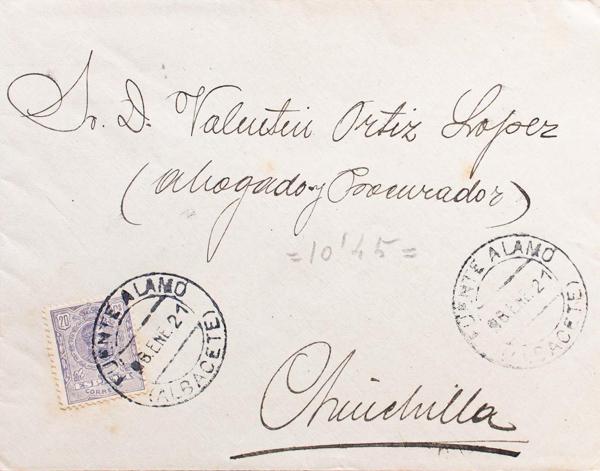 Sr. D. Valentin Ortiz Lopez
(Abogado y Procurador)
=10'45=
FUENTE ALAMO
6.ENE.21
(ALBACETE)
FUENTE ALAMO
6.ENE.21
(ALBACETE)
20
CORREOS
Chinchilla